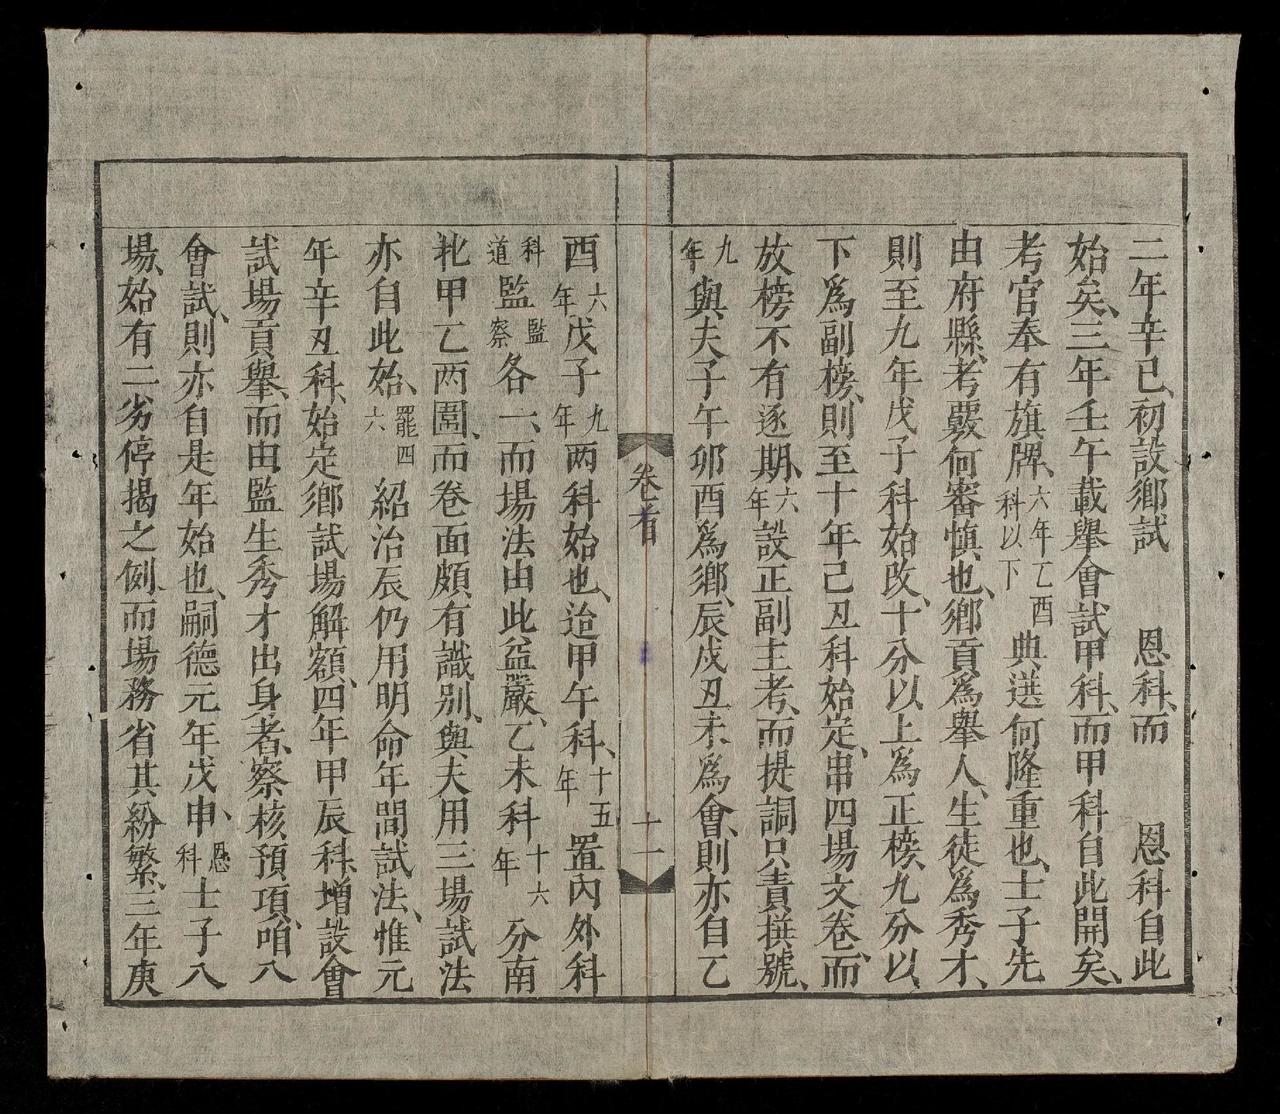 二年辛巳、初設鄉試 恩科、而 恩科自此
始矣、三年壬午載舉會試甲科、而甲科自此開矣、
考官奉有旗牌、六年乙酉科以下典選何隆重也、士子先
由府縣、考覈何審慎也、鄉貢為舉人、生徒為秀才、
則至九年戊子科始改、十分以上為正榜、九分以
下爲副榜、則至十年己丑科始定、串四場文卷、而
放榜不有逐期、六年設正副主考、而提調只責撰號、
九年與夫子午卯酉爲鄉、辰戌丑未爲會、則亦自乙
卷首
十一
酉六年戊子九年兩科始也、迨甲午科、十五年置內外科
科道監監察各一、而場法由此益嚴、乙未科十六年分南
靴甲乙兩圍、而卷面頗有識別、與夫用三場試法
亦自此始、罷四六紹治辰仍用明命年間試法、惟元
年辛丑科、始定鄉試場解額、四年甲辰科、增設會
試場貢舉、而由監生秀才出身者、察核預項、咱八
會試、則亦自是年始也、嗣德元年戊申、恩科士子八
場、始有二劣停揭之例、而場務省其紛繁、三年庚